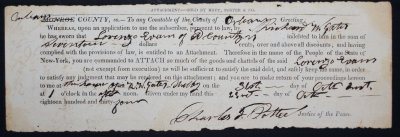 ATTACHMENT—SOLD BY HOYT, PORTER & CO.
Orleans MONROE COUNTY, ss.—To any Constable of the County of Orleans Greeting:
WHEREAS, upon an application to the subscriber, pursuant to law, by
has been shown Lorenzo Evans of the County indebted to him in the sum of
seventeen dollars cents, over and above all discounts, and having
complied with the provisions of law, is entitled to an Attachment. Therefore in the name of the People of the State of
New-York, you are commanded to ATTACH so much of the goods and chattels of the said Lorenzo Evans
(not exempt from execution) as will be sufficient to satisfy the said debt, and safely keep the same, in order
to satisfy any judgment that may be rendered on this attachment; and you are to make return of your proceedings hereon
to me at on the 31st day of Oct. inst.
at 1 o'clock in the Given under my hand this day of Oct
eighteen hundred and thirty four
Charles J. Potter Justice of the Peace.